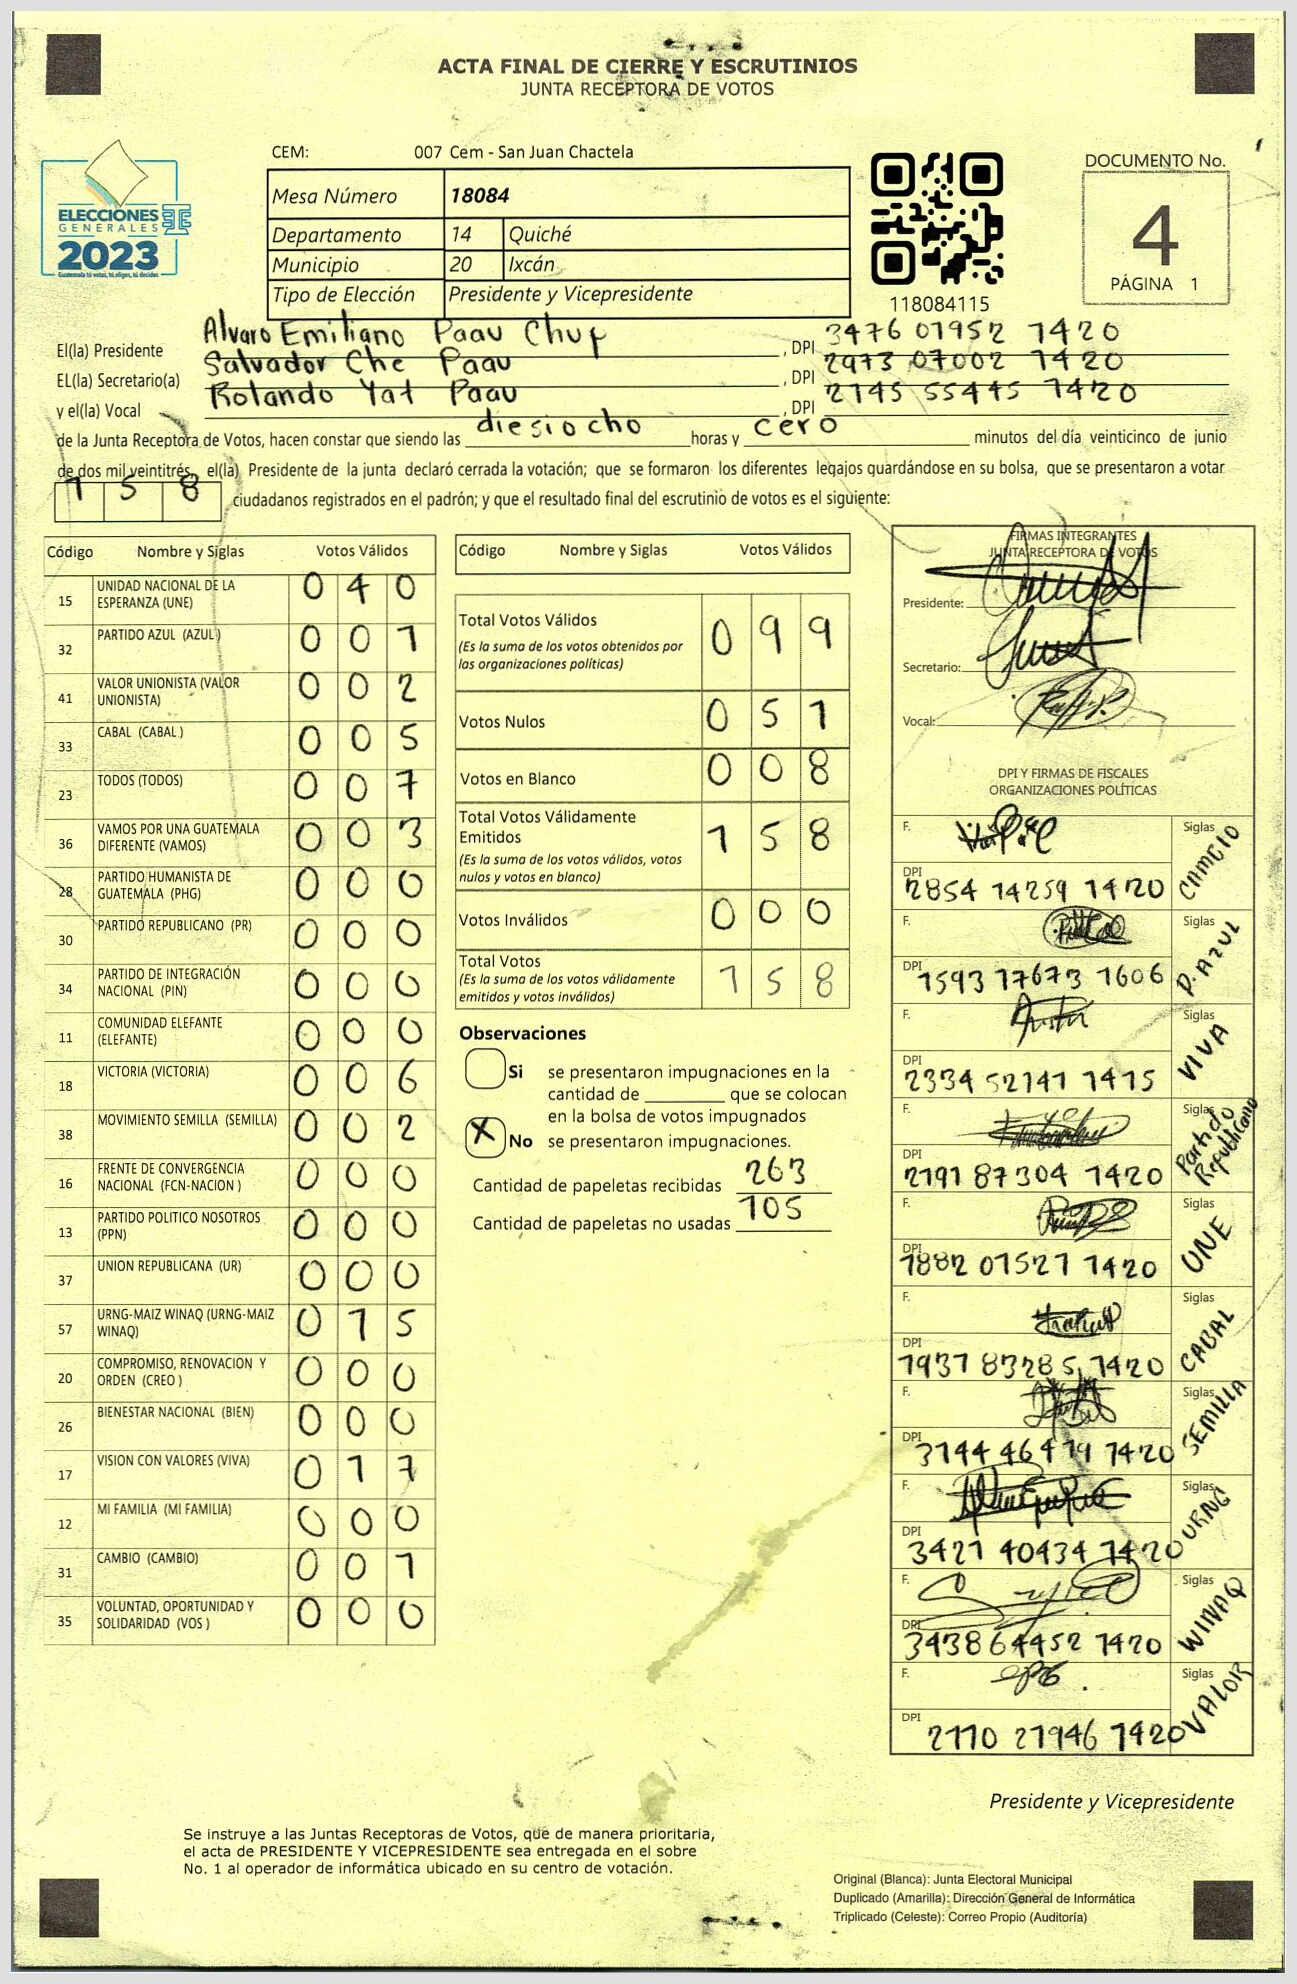 ACTA FINAL DE CIERRE Y ESCRUTINIOS
JUNTA RECEPTORA DE VOTOS
CEM: 007 Cem - San Juan Chactela
DOCUMENTO No.
4
PÁGINA 1
ELECCIONES
GENERALES
2023
Guatemala tú votas, tú eliges, tú decides
Mesa Número 18084
Departamento 14 Quiché
Municipio 20 Ixcán
Tipo de Elección Presidente y Vicepresidente
118084115
El(la) Presidente Alvaro Emiliano Paau Chup , DPI 3476 01952 1420
EL(la) Secretario(a) Salvador Che Paau , DPI 2973 07002 1420
y el(la) Vocal Rolando Yat Paau , DPI 2145 55445 1420
de la Junta Receptora de Votos, hacen constar que siendo las diesiocho horas y cero minutos del día veinticinco de junio
de dos mil veintitrés, el(la) Presidente de la junta declaró cerrada la votación; que se formaron los diferentes legajos guardándose en su bolsa, que se presentaron a votar
1 5 8 ciudadanos registrados en el padrón; y que el resultado final del escrutinio de votos es el siguiente:
Código Nombre y Siglas Votos Válidos
15 UNIDAD NACIONAL DE LA ESPERANZA (UNE) 0 4 0
32 PARTIDO AZUL (AZUL) 0 0 1
41 VALOR UNIONISTA (VALOR UNIONISTA) 0 0 2
33 CABAL (CABAL ) 0 0 5
23 TODOS (TODOS) 0 0 7
36 VAMOS POR UNA GUATEMALA DIFERENTE (VAMOS) 0 0 3
28 PARTIDO HUMANISTA DE GUATEMALA (PHG) 0 0 0
30 PARTIDO REPUBLICANO (PR) 0 0 0
34 PARTIDO DE INTEGRACIÓN NACIONAL (PIN) 0 0 0
11 COMUNIDAD ELEFANTE (ELEFANTE) 0 0 0
18 VICTORIA (VICTORIA) 0 0 6
38 MOVIMIENTO SEMILLA (SEMILLA) 0 0 2
16 FRENTE DE CONVERGENCIA NACIONAL (FCN-NACION ) 0 0 0
13 PARTIDO POLITICO NOSOTROS (PPN) 0 0 0
37 UNION REPUBLICANA (UR) 0 0 0
57 URNG-MAIZ WINAQ (URNG-MAIZ WINAQ) 0 1 5
20 COMPROMISO, RENOVACION Y ORDEN (CREO ) 0 0 0
26 BIENESTAR NACIONAL (BIEN) 0 0 0
17 VISION CON VALORES (VIVA) 0 1 7
12 MI FAMILIA (MI FAMILIA) 0 0 0
31 CAMBIO (CAMBIO) 0 0 1
35 VOLUNTAD, OPORTUNIDAD Y SOLIDARIDAD (VOS ) 0 0 0
Código Nombre y Siglas Votos Válidos
Total Votos Válidos 0 9 9
(Es la suma de los votos obtenidos por
las organizaciones políticas)
Votos Nulos 0 5 1
Votos en Blanco 0 0 8
Total Votos Válidamente
Emitidos 1 5 8
(Es la suma de los votos válidos, votos
nulos y votos en blanco)
Votos Inválidos 0 0 0
Total Votos 1 5 8
(Es la suma de los votos válidamente
emitidos y votos inválidos)
Observaciones
Si se presentaron impugnaciones en la
cantidad de ________ que se colocan
en la bolsa de votos impugnados
X No se presentaron impugnaciones.
Cantidad de papeletas recibidas 263
Cantidad de papeletas no usadas 105
FIRMAS INTEGRANTES
JUNTA RECEPTORA DE VOTOS
Presidente:
Secretario:
Vocal:
DPI Y FIRMAS DE FISCALES
ORGANIZACIONES POLÍTICAS
F. Siglas CAMBIO
DPI 2854 14259 1420
F. Siglas P. AZUL
DPI 1593 17673 1606
F. Siglas VIVA
DPI 2334 52141 1415
F. Siglas Partido Republicano
DPI 2191 87304 1420
F. Siglas UNE
DPI 1882 01527 1420
F. Siglas CABAL
DPI 1937 83285 1420
F. Siglas SEMILLA
DPI 3144 46419 1420
F. Siglas URNG
DPI 3421 40434 1420
F. Siglas WINAQ
DPI 3438 64452 1420
F. Siglas VALOR
DPI 2110 21946 1420
Presidente y Vicepresidente
Se instruye a las Juntas Receptoras de Votos, que de manera prioritaria,
el acta de PRESIDENTE Y VICEPRESIDENTE sea entregada en el sobre
No. 1 al operador de informática ubicado en su centro de votación.
Original (Blanca): Junta Electoral Municipal
Duplicado (Amarilla): Dirección General de Informática
Triplicado (Celeste): Correo Propio (Auditoría)